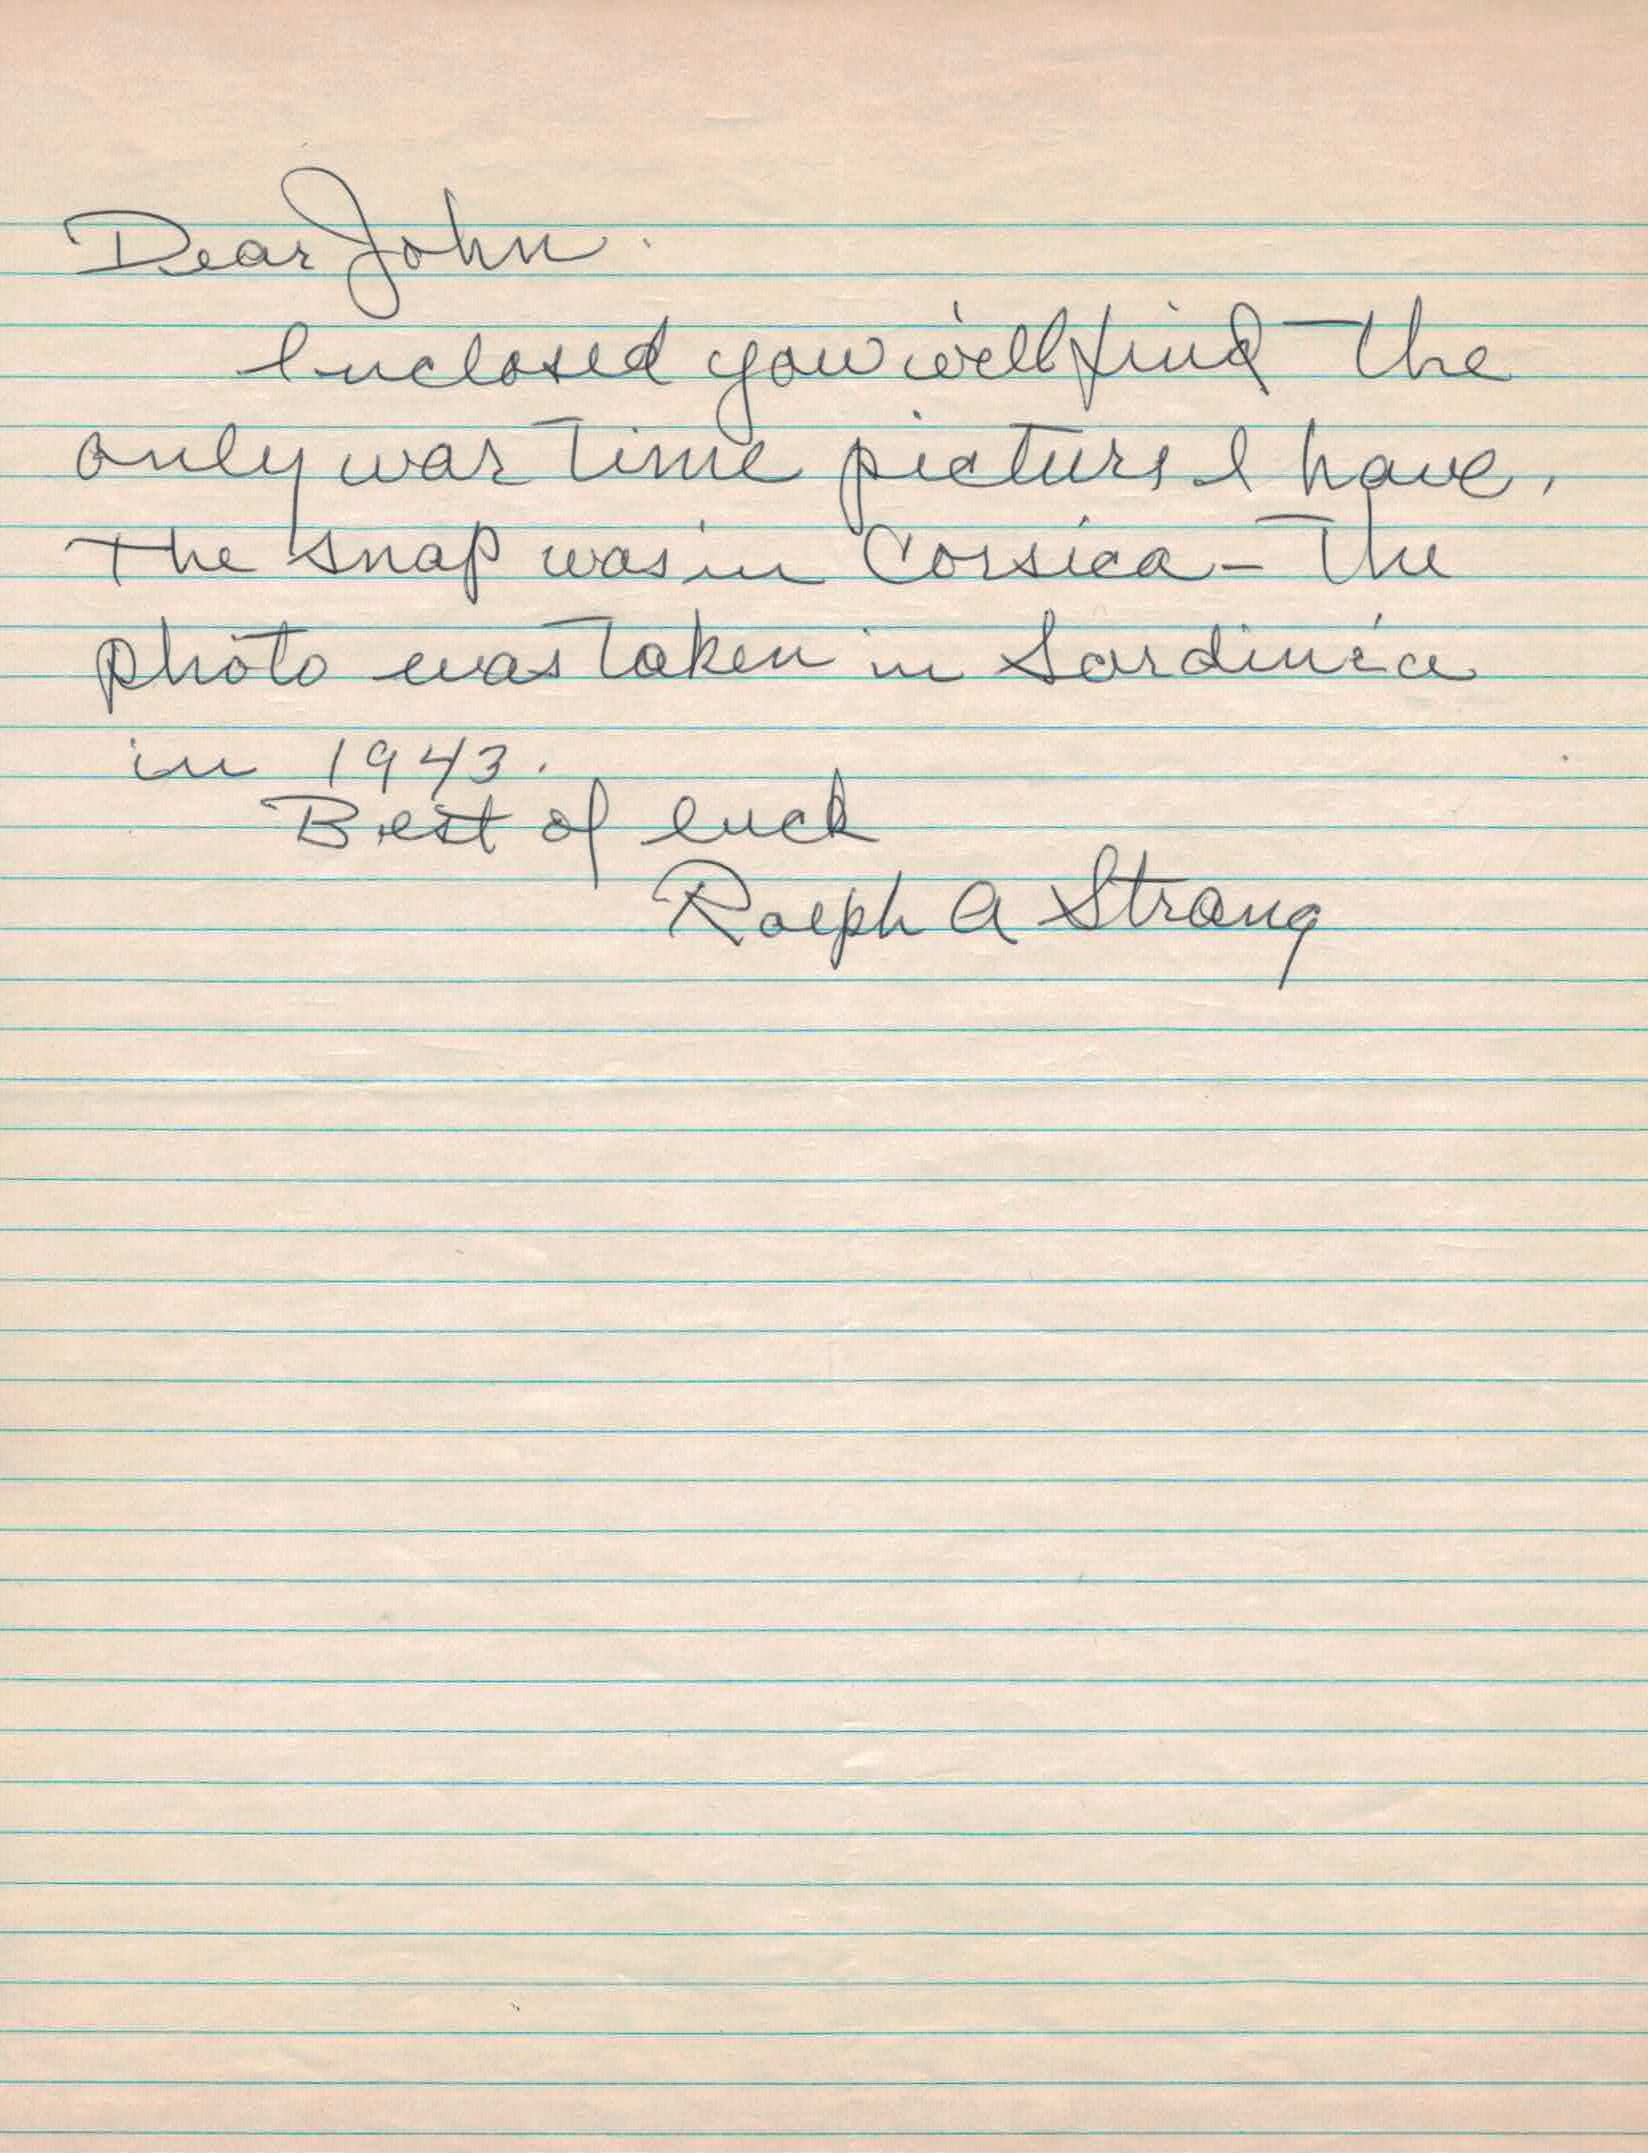 Dear John.
Enclosed you will find the
only war time picture I have.
The snap was in Corsica - The
photo was taken in Sardinia
in 1943.
Best of luck
Ralph A Strang